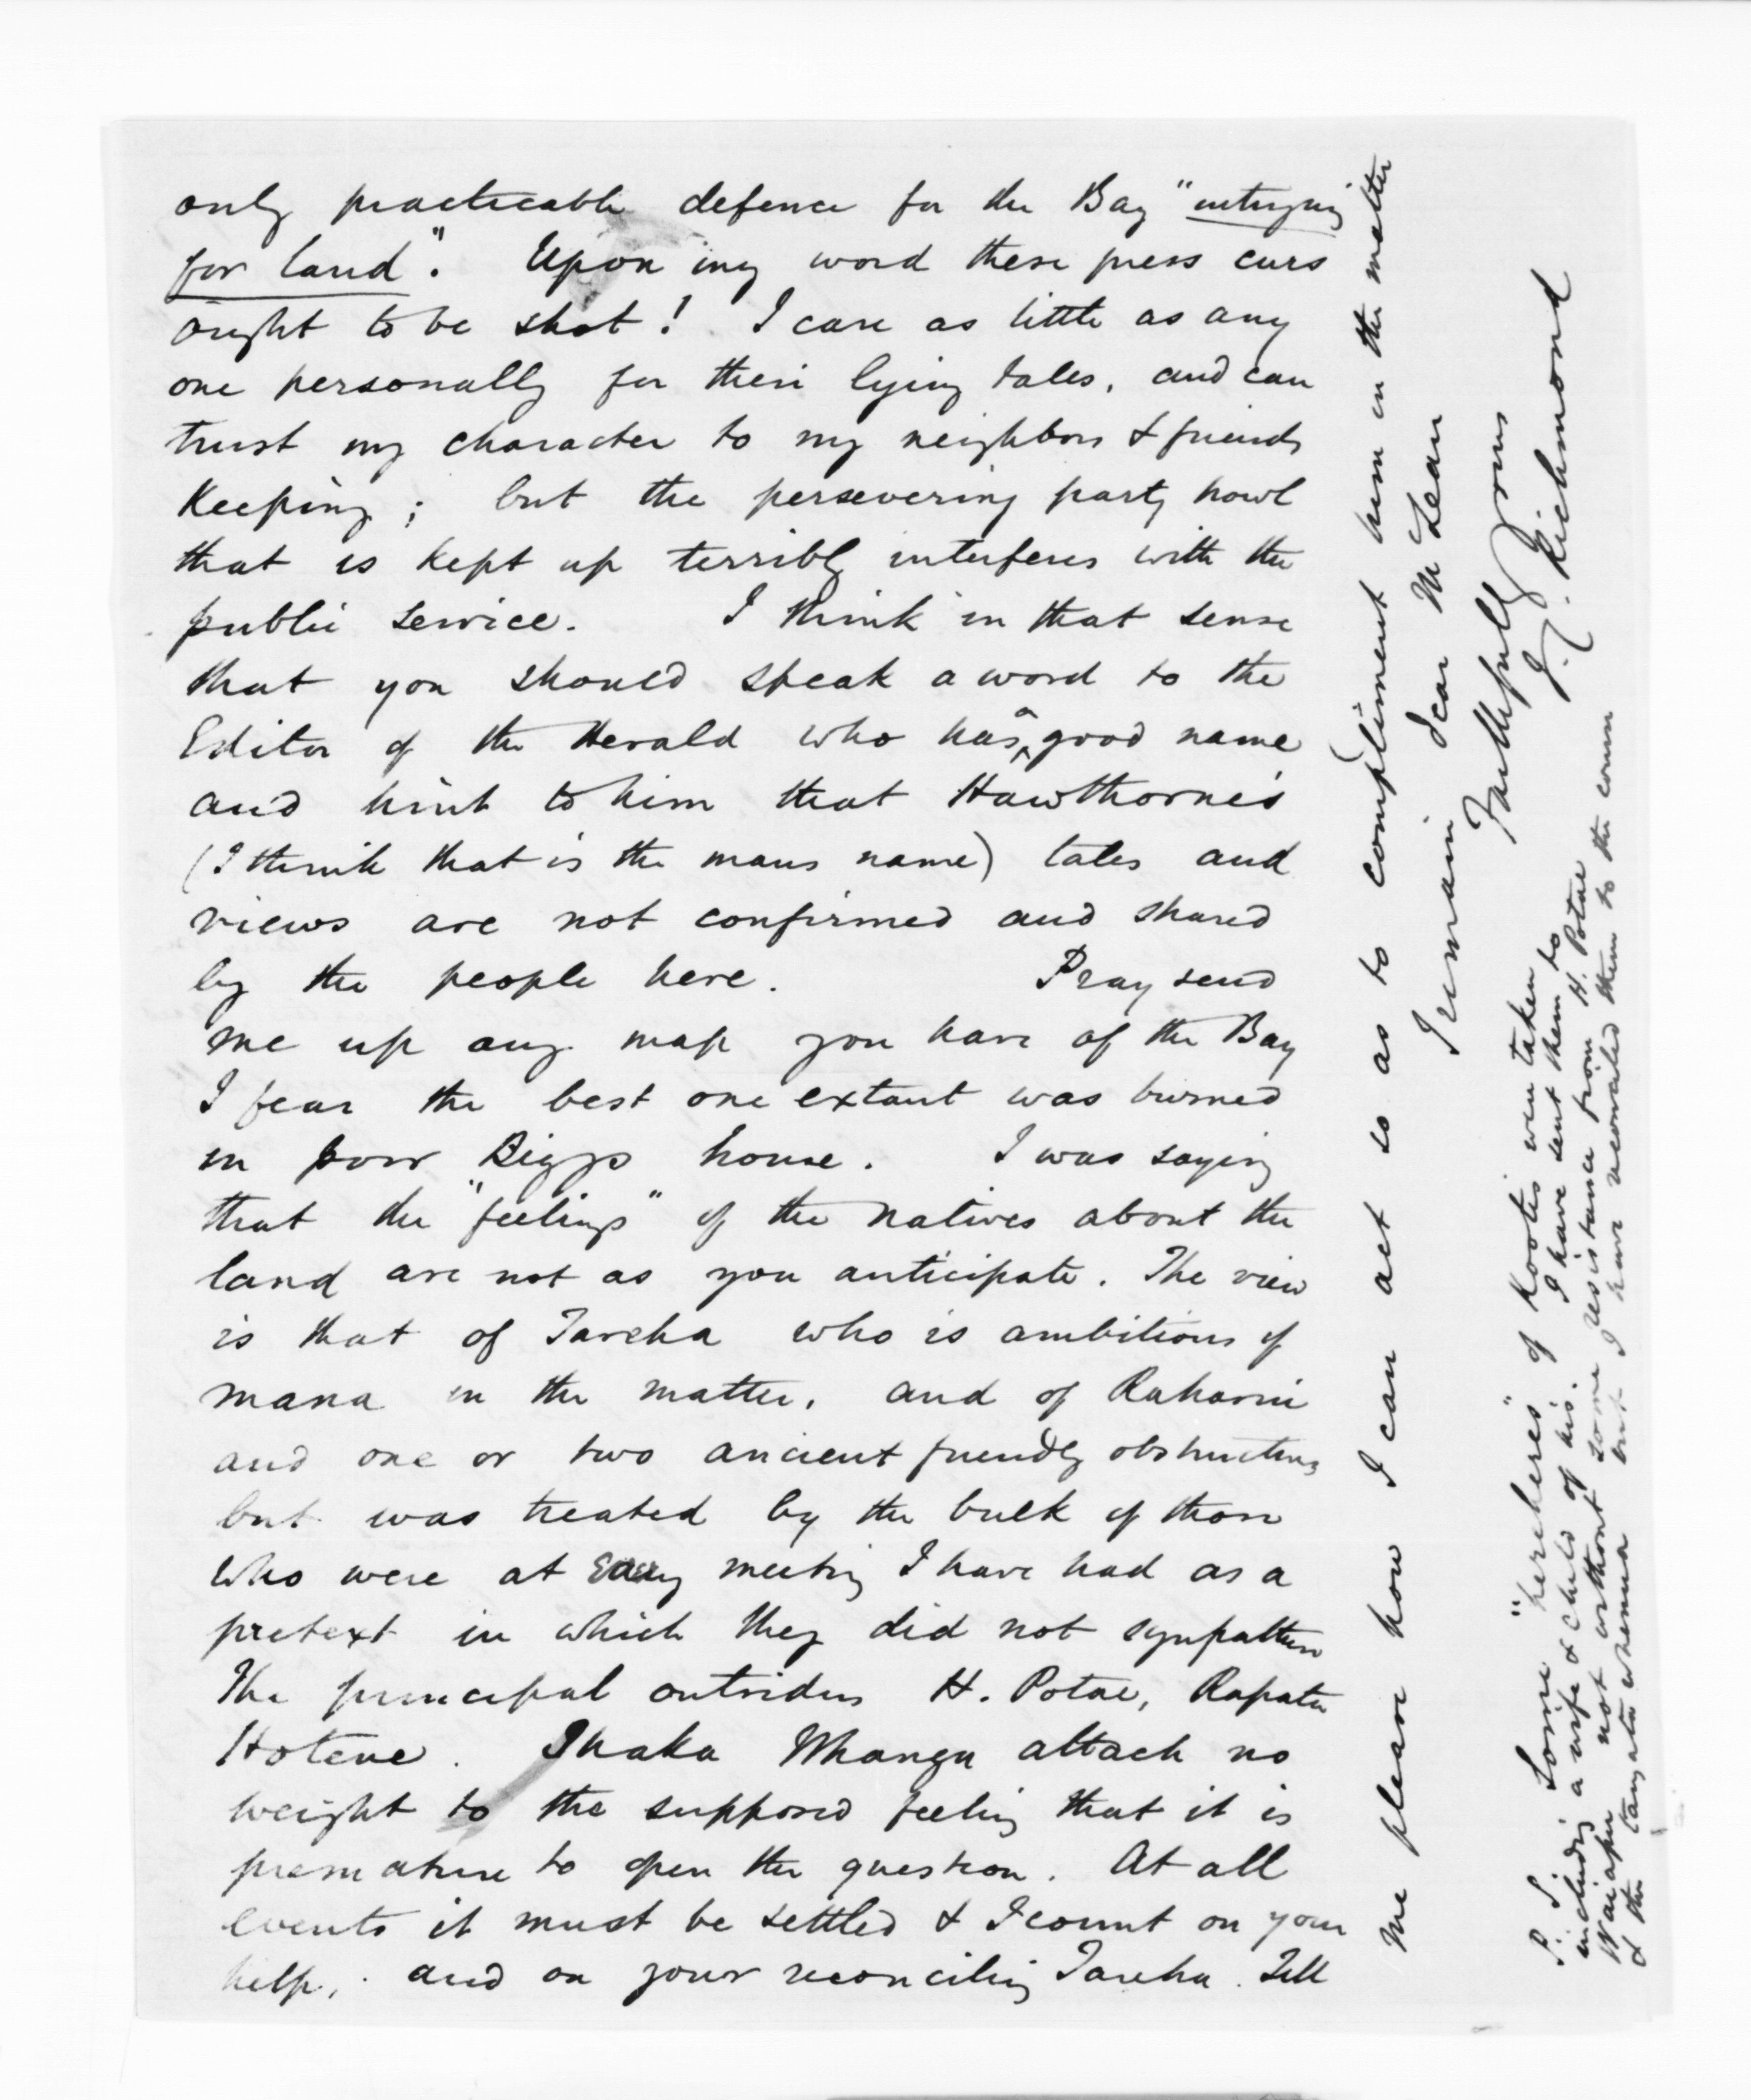 only practicable defence for the Bay "intriguing
for land". Upon my word these press curs
ought to be shot! I care as little as any
one personally for their lying tales, and can
trust my character to my neighbors & friends
Keeping; but the persevering party howl
that is kept up terribly interferes with the
public service. I think in that sense
that you should speak a word to the
Editor of the Herald who has a good name
and hint to him that Hawthorne's
(I think that is the mans name) tales and
views are not confirmed and shared
by the people here. Pray send
me up any map you have of the Bay
I fear the best one extant was burned
in poor Biggs house. I was saying
that the "feelings" of the natives about the
land are not as you anticipate. The view
is that of Tareha who is ambitious of
mana in the matter, and of
and one or two ancient friendly obstructives
but was treated by the bulk of those
who were at every meeting I have had as a
pretext in which they did not sympathise
The principal outsiders H. Potae, Rapata
Hotene. Ihaka Whanga attach no
weight to the supposed feeling that it is
premature to open the question. At all
events it must be settled & I count on your
help, and on your reconciling Tareha. Tell
me please how I can act so as to compliment him in the matter
I remain Dear McLean
Faithfully Yours
J.C. Richmond
P.S. Some "herehere" of Kootis were taken
including a wife & child of his. I have sent them to
Waiapu not without some resistance from H. Potae
& the tangata whenua but I have reconciled them to the course